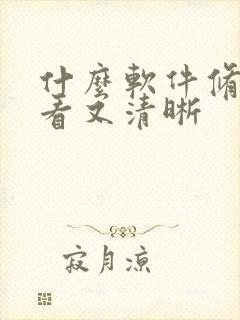 什麼軟件偹
看又清晰
寂月凉